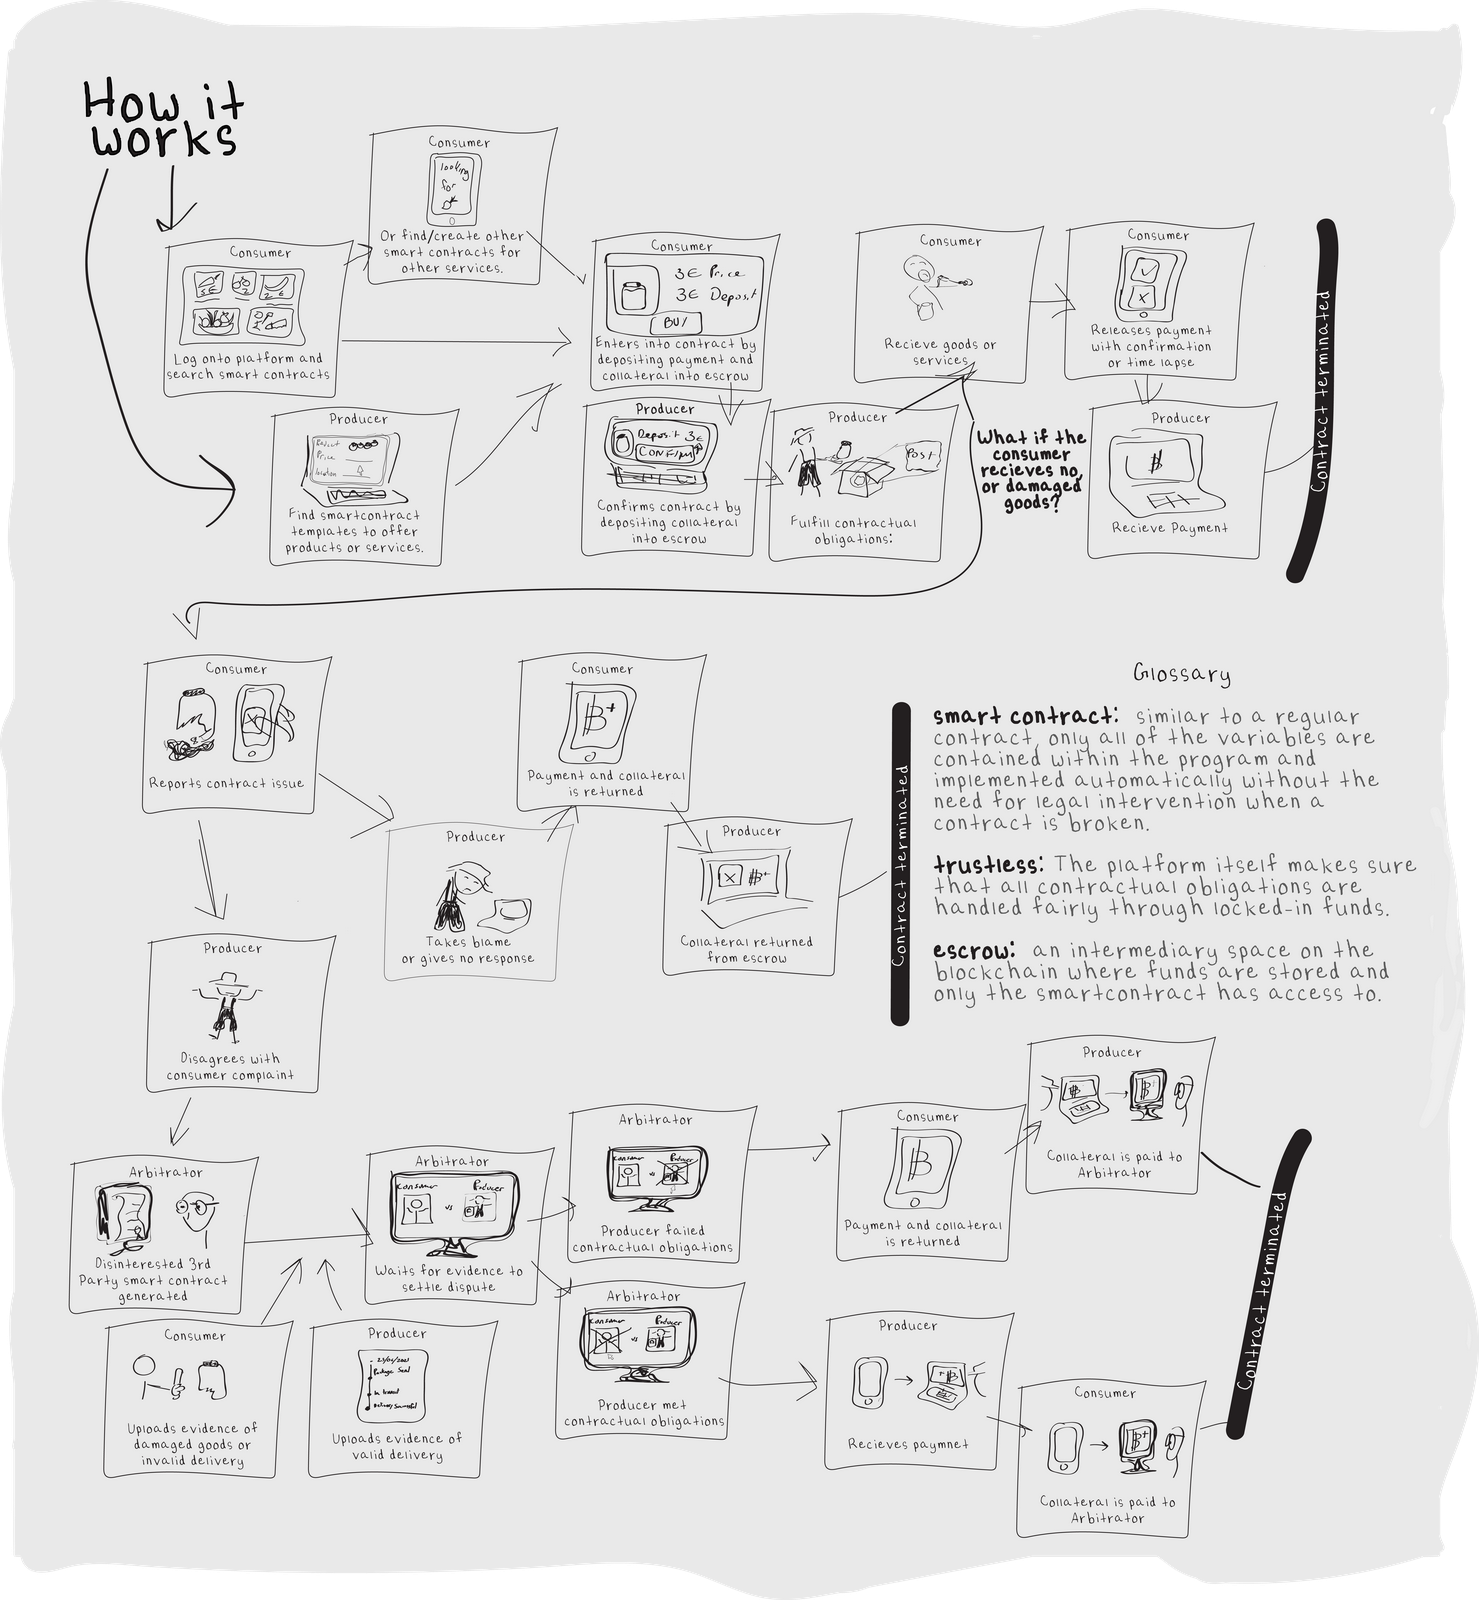 How it
works
Consumer
looking
for
Or find/create other
smart contracts for
other services.
Consumer
Log onto platform and
search smart contracts
Producer
Product
Price
location
Find smartcontract
templates to offer
products or services.
Consumer
3€ Price
3€ Deposit
BUY
Enters into contract by
depositing payment and
collateral into escrow
Producer
Deposit 3€
CONFIRM
Confirms contract by
depositing collateral
into escrow
Producer
Post
Fulfill contractual
obligations:
Consumer
Recieve goods or
services
Consumer
Releases payment
with confirmation
or time lapse
Producer
Recieve Payment
Contract terminated
What if the
consumer
recieves no,
or damaged
goods?
Consumer
Reports contract issue
Producer
Takes blame
or gives no response
Consumer
Payment and collateral
is returned
Producer
Collateral returned
from escrow
Contract terminated
Glossary
smart contract: similar to a regular
contract, only all of the variables are
contained within the program and
implemented automatically without the
need for legal intervention when a
contract is broken.
trustless: The platform itself makes sure
that all contractual obligations are
handled fairly through locked-in funds.
escrow: an intermediary space on the
blockchain where funds are stored and
only the smartcontract has access to.
Producer
Disagrees with
consumer complaint
Arbitrator
Disinterested 3rd
Party smart contract
generated
Consumer
Uploads evidence of
damaged goods or
invalid delivery
Producer
Package Sent
In transit
Delivery Successful
Uploads evidence of
valid delivery
Arbitrator
Consumer
vs
Producer
Waits for evidence to
settle dispute
Arbitrator
Consumer
vs
Producer
Producer failed
contractual obligations
Arbitrator
Consumer
vs
Producer
Producer met
contractual obligations
Consumer
Payment and collateral
is returned
Producer
Collateral is paid to
Arbitrator
Producer
Recieves paymnet
Consumer
Collateral is paid to
Arbitrator
Contract terminated